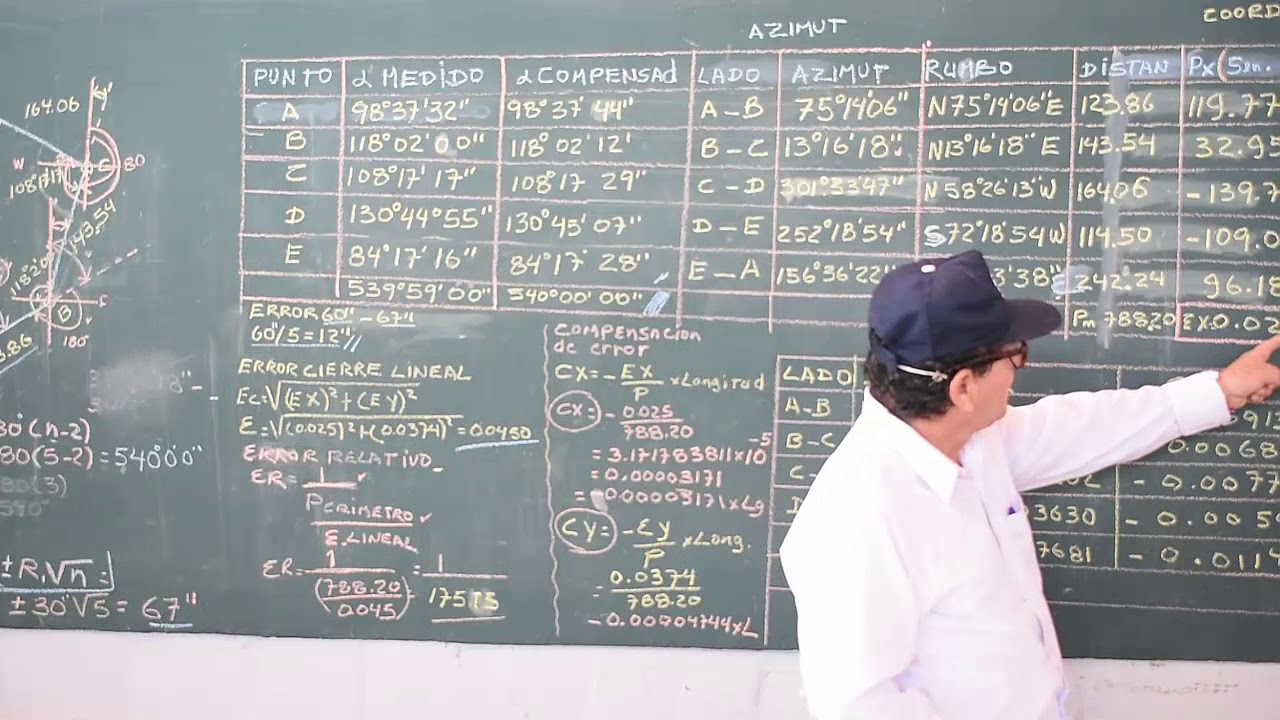 AZIMUT
COORD
PUNTO α MEDIDO α COMPENSAD LADO AZIMUT RUMBO DISTAN Px (Sen.
A 98°37'32" 98°37'44" A-B 75°14'06" N75°14'06"E 123.86 119.77
B 118°02'00" 118°02'12' B-C 13°16'18" N13°16'18" E 143.54 32.95
C 108°17'17" 108°17 29" C-D 301°33'47" N58°26'13'W 164.06 -139.7
D 130°44°55" 130°45'07" D-E 252°18'54" S72°18'54W 114.50 -109.0
E 84°17'16" 84°17'28" E-A 156°36'22" 3'38" 242.24 96.18
539°59'00" 540°00'00" Pm 788.20 Ex0.02
164.06
y'
W E 80
108°17'17"
143.54
118°20
B
180
3.86
ERROR 60" - 67"
60"/5=12"
ERROR CIERRE LINEAL
Ec=√(EX)²+(EY)²
E=√(0.025)²+(0.0374)²=0.0450
ERROR RELATIVO
ER= 1
PERIMETRO
E.LINEAL
ER= 1 = 1
(788.20) 17515
0.045
COMPENSACION
de error
CX=-EX xLongitud
P
CX=-0.025
788.20
=3.171783811x10-5
=0.00003171
=0.00003171xLg
CY=-EY xLong.
P
=0.0374
788.20
-0.00004744xL
LADO
A-B
B-C 0.0068
C- -0.0077
D 3630 -0.0050
7681 -0.0114
80(5-2)=540°0'0"
80(3)
±R.√n
±30"√5=67"